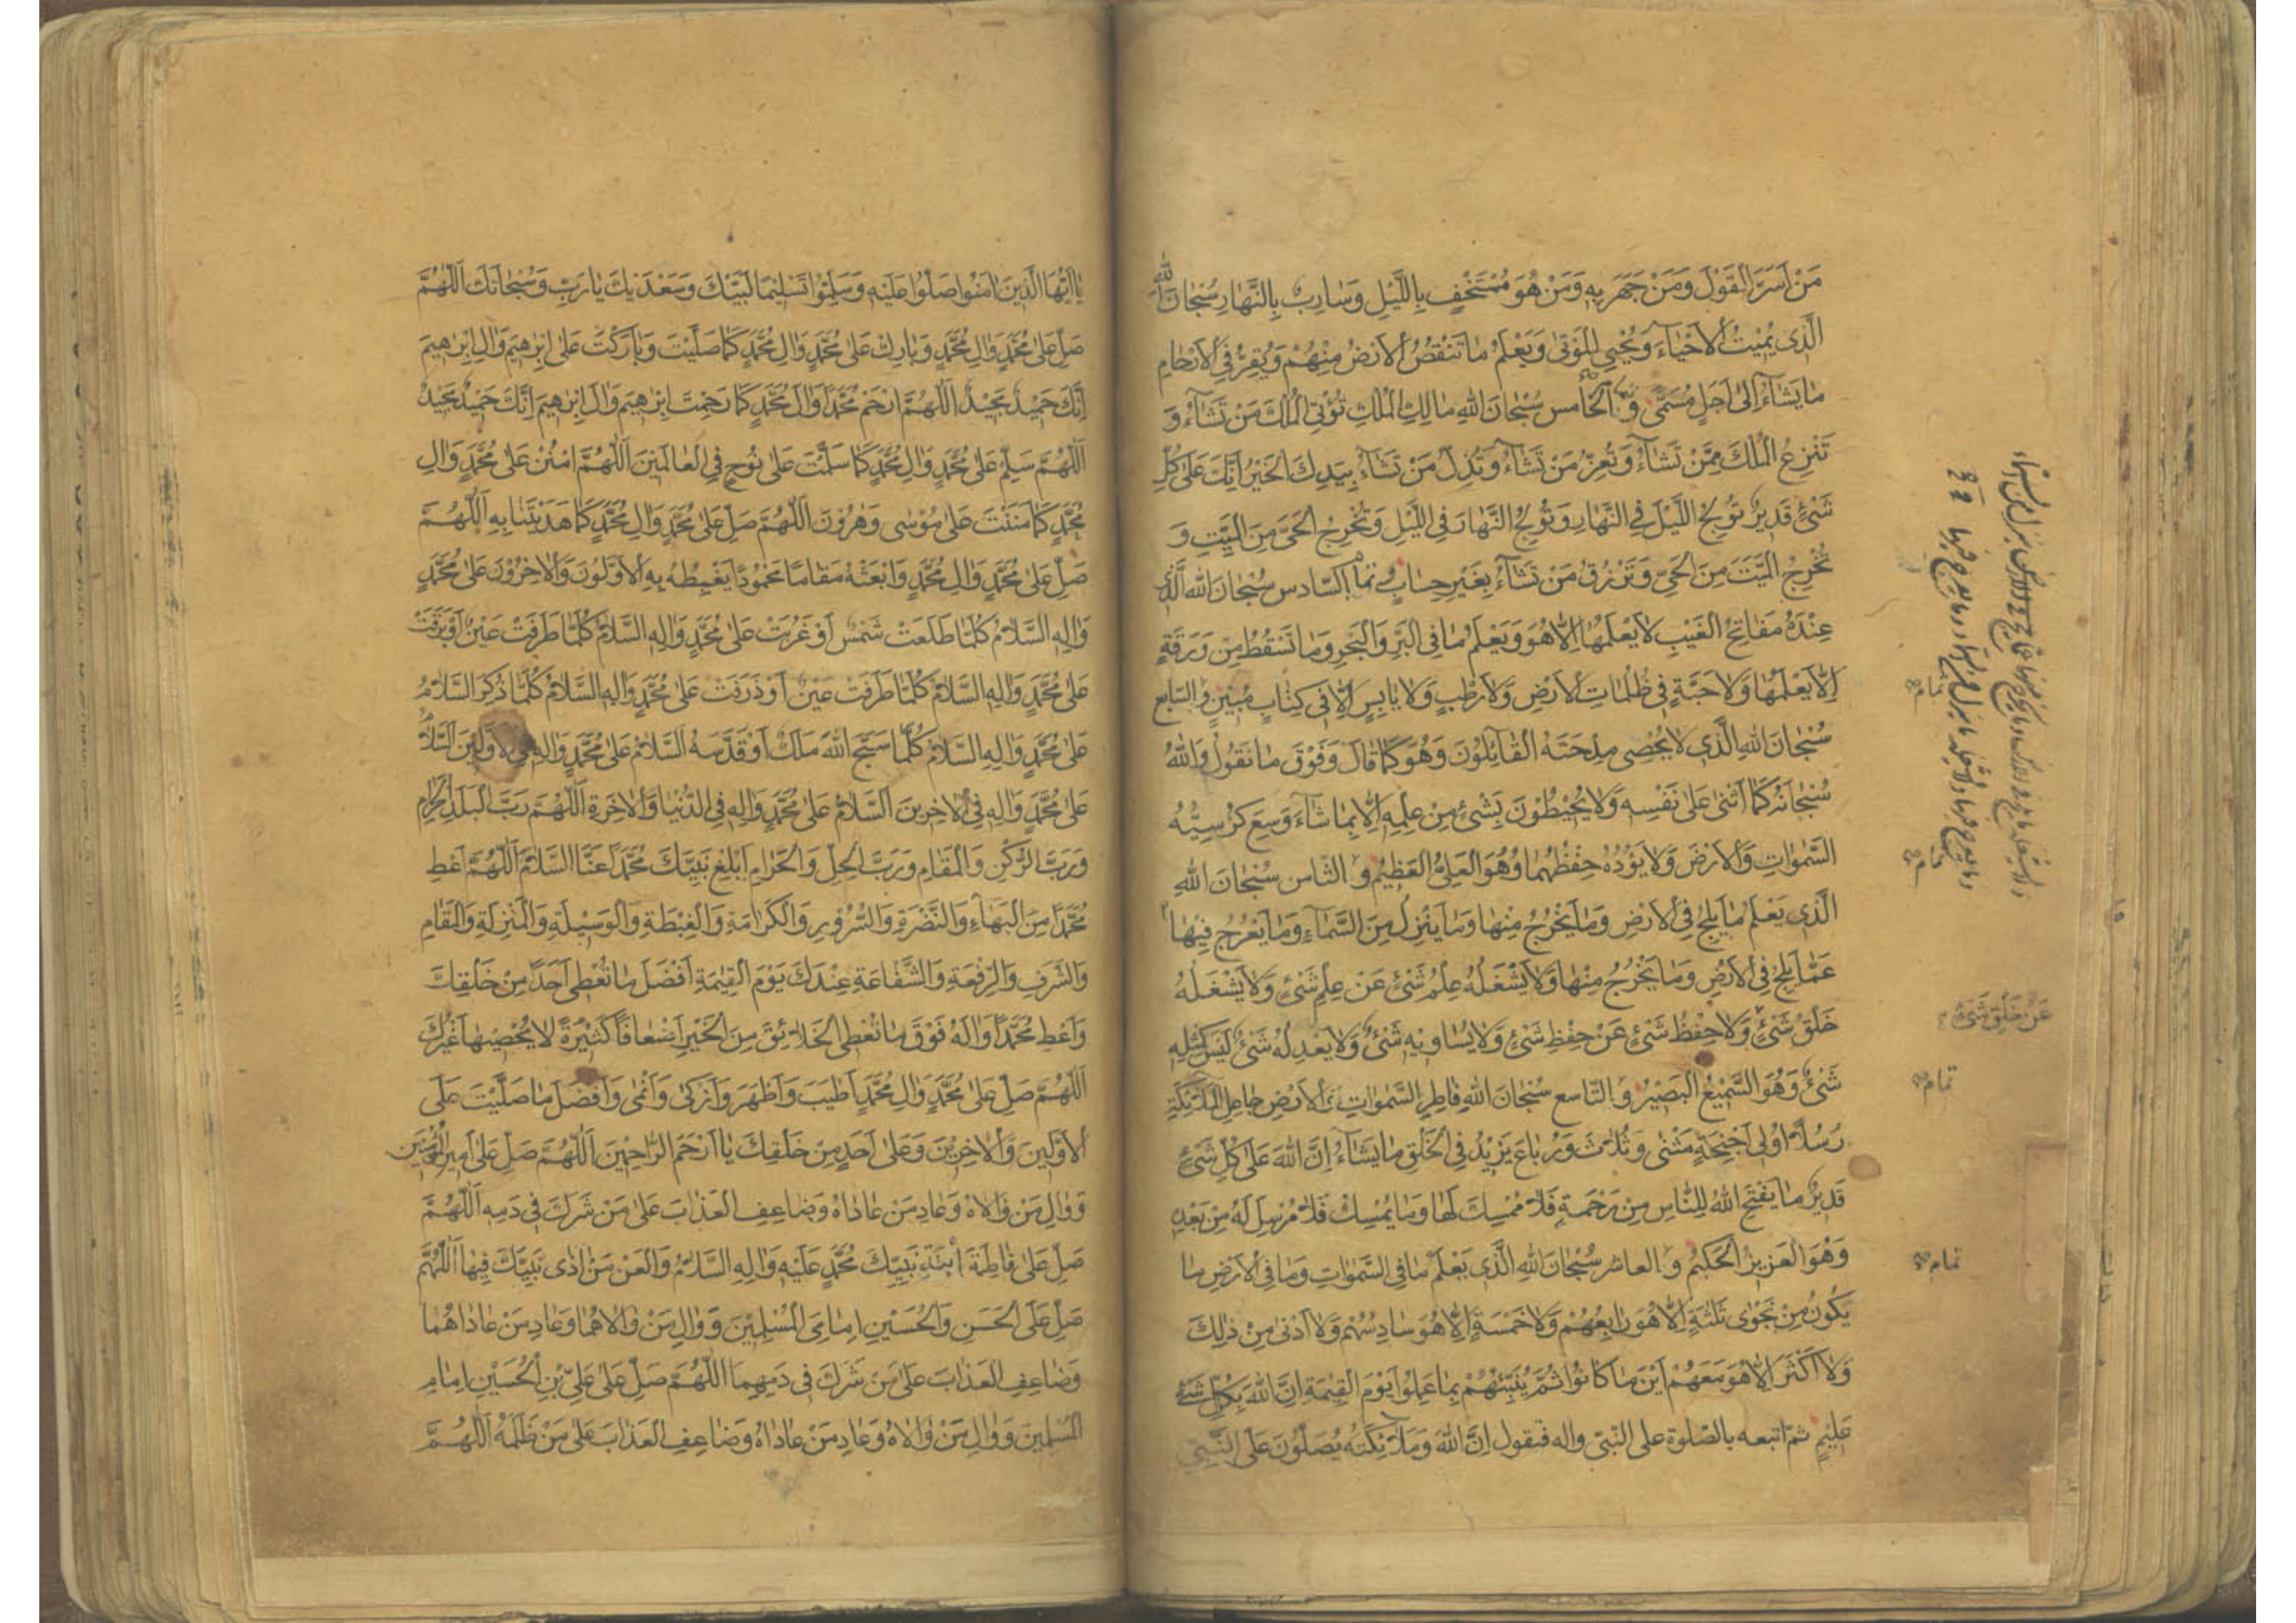 مَنْ اَسَرَّ الْقَوْلَ وَمَنْ جَهَرَ بِهِ وَمَنْ هُوَ مُسْتَخْفٍ بِاللَّيْلِ وَسَارِبٌ بِالنَّهَارِ سُبْحَانَ اللهِ
الَّذِى يُمِيتُ الْاَحْيَاءَ وَيُحْيِى الْمَوْتىٰ وَيَعْلَمُ مَا تَنْقُصُ الْاَرْضُ مِنْهُمْ وَيُقِرُّ فِى الْاَرْحَامِ
مَا يَشَاءُ اِلىٰ اَجَلٍ مُسَمًّى وَ الخامس سُبْحَانَ اللهِ مَالِكِ الْمُلْكِ تُؤْتِى الْمُلْكَ مَنْ تَشَاءُ وَ
تَنْزِعُ الْمُلْكَ مِمَّنْ تَشَاءُ وَتُعِزُّ مَنْ تَشَاءُ وَتُذِلُّ مَنْ تَشَاءُ بِيَدِكَ الْخَيْرُ اِنَّكَ عَلىٰ كُلِّ
شَىْءٍ قَدِيرٌ تُولِجُ اللَّيْلَ فِى النَّهَارِ وَتُولِجُ النَّهَارَ فِى اللَّيْلِ وَتُخْرِجُ الْحَىَّ مِنَ الْمَيِّتِ وَ
تُخْرِجُ الْمَيِّتَ مِنَ الْحَىِّ وَتَرْزُقُ مَنْ تَشَاءُ بِغَيْرِ حِسَابٍ السادس سُبْحَانَ اللهِ الَّذِى
عِنْدَهُ مَفَاتِحُ الْغَيْبِ لَا يَعْلَمُهَا اِلَّا هُوَ وَيَعْلَمُ مَا فِى الْبَرِّ وَالْبَحْرِ وَمَا تَسْقُطُ مِنْ وَرَقَةٍ
اِلَّا يَعْلَمُهَا وَلَا حَبَّةٍ فِى ظُلُمَاتِ الْاَرْضِ وَلَا رَطْبٍ وَلَا يَابِسٍ اِلَّا فِى كِتَابٍ مُبِينٍ والسابع
سُبْحَانَ اللهِ الَّذِى لَا يُحْصِى مِدْحَتَهُ الْقَائِلُونَ وَهُوَ كَمَا قَالَ وَفَوْقَ مَا نَقُولُ وَاللهُ
سُبْحَانَهُ كَمَا اَثْنىٰ عَلىٰ نَفْسِهِ وَلَا يُحِيطُونَ بِشَىْءٍ مِنْ عِلْمِهِ اِلَّا بِمَا شَاءَ وَسِعَ كُرْسِيُّهُ
السَّمٰوَاتِ وَالْاَرْضَ وَلَا يَؤُدُهُ حِفْظُهُمَا وَهُوَ الْعَلِىُّ الْعَظِيمُ و الثامن سُبْحَانَ اللهِ
الَّذِى يَعْلَمُ مَا يَلِجُ فِى الْاَرْضِ وَمَا يَخْرُجُ مِنْهَا وَمَا يَنْزِلُ مِنَ السَّمَاءِ وَمَا يَعْرُجُ فِيهَا
عَمَّا يَلِجُ فِى الْاَرْضِ وَمَا يَخْرُجُ مِنْهَا وَلَا يَشْغَلُهُ عِلْمُ شَىْءٍ عَنْ عِلْمِ شَىْءٍ وَلَا يَشْغَلُهُ
خَلْقُ شَىْءٍ وَلَا حِفْظُ شَىْءٍ عَنْ حِفْظِ شَىْءٍ وَلَا يُسَاوِيهِ شَىْءٌ وَلَا يَعْدِلُهُ شَىْءٌ لَيْسَ كَمِثْلِهِ
شَىْءٌ وَهُوَ السَّمِيعُ الْبَصِيرُ و التاسع سُبْحَانَ اللهِ فَاطِرِ السَّمٰوَاتِ وَالْاَرْضِ جَاعِلِ الْمَلٰئِكَةِ
رُسُلًا اُولِى اَجْنِحَةٍ مَثْنىٰ وَثُلَاثَ وَرُبَاعَ يَزِيدُ فِى الْخَلْقِ مَا يَشَاءُ اِنَّ اللهَ عَلىٰ كُلِّ شَىْءٍ
قَدِيرٌ مَا يَفْتَحِ اللهُ لِلنَّاسِ مِنْ رَحْمَةٍ فَلَا مُمْسِكَ لَهَا وَمَا يُمْسِكْ فَلَا مُرْسِلَ لَهُ مِنْ بَعْدِهِ
وَهُوَ الْعَزِيزُ الْحَكِيمُ و العاشر سُبْحَانَ اللهِ الَّذِى يَعْلَمُ مَا فِى السَّمٰوَاتِ وَمَا فِى الْاَرْضِ مَا
يَكُونُ مِنْ نَجْوىٰ ثَلٰثَةٍ اِلَّا هُوَ رَابِعُهُمْ وَلَا خَمْسَةٍ اِلَّا هُوَ سَادِسُهُمْ وَلَا اَدْنىٰ مِنْ ذٰلِكَ
وَلَا اَكْثَرَ اِلَّا هُوَ مَعَهُمْ اَيْنَ مَا كَانُوا ثُمَّ يُنَبِّئُهُمْ بِمَا عَمِلُوا يَوْمَ الْقِيٰمَةِ اِنَّ اللهَ بِكُلِّ شَىْءٍ
عَلِيمٌ ثم اتبعه بالصلوة على النبى واله فتقول اِنَّ اللهَ وَمَلَائِكَتَهُ يُصَلُّونَ عَلَى النَّبِىِّ
تمام
تمام
عَنْ خَلْقِ شَىْءٍ
تمام
تمام
يَا اَيُّهَا الَّذِينَ اٰمَنُوا صَلُّوا عَلَيْهِ وَسَلِّمُوا تَسْلِيمًا لَبَّيْكَ وَسَعْدَيْكَ يَا رَبِّ وَسُبْحَانَكَ اَللّٰهُمَّ
صَلِّ عَلىٰ مُحَمَّدٍ وَالِ مُحَمَّدٍ وَبَارِكْ عَلىٰ مُحَمَّدٍ وَالِ مُحَمَّدٍ كَمَا صَلَّيْتَ وَبَارَكْتَ عَلىٰ اِبْرٰهِيمَ وَالِ اِبْرٰهِيمَ
اِنَّكَ حَمِيدٌ مَجِيدٌ اَللّٰهُمَّ ارْحَمْ مُحَمَّدًا وَالَ مُحَمَّدٍ كَمَا رَحِمْتَ اِبْرٰهِيمَ وَالَ اِبْرٰهِيمَ اِنَّكَ حَمِيدٌ مَجِيدٌ
اَللّٰهُمَّ سَلِّمْ عَلىٰ مُحَمَّدٍ وَالِ مُحَمَّدٍ كَمَا سَلَّمْتَ عَلىٰ نُوحٍ فِى الْعَالَمِينَ اَللّٰهُمَّ امْنُنْ عَلىٰ مُحَمَّدٍ وَالِ
مُحَمَّدٍ كَمَا مَنَنْتَ عَلىٰ مُوسىٰ وَهٰرُونَ اَللّٰهُمَّ صَلِّ عَلىٰ مُحَمَّدٍ وَالِ مُحَمَّدٍ كَمَا هَدَيْتَنَا بِهِ اَللّٰهُمَّ
صَلِّ عَلىٰ مُحَمَّدٍ وَالِ مُحَمَّدٍ وَابْعَثْهُ مَقَامًا مَحْمُودًا يَغْبِطُهُ بِهِ الْاَوَّلُونَ وَالْاٰخِرُونَ عَلىٰ مُحَمَّدٍ
وَالِهِ السَّلَامُ كُلَّمَا طَلَعَتْ شَمْسٌ اَوْ غَرُبَتْ عَلىٰ مُحَمَّدٍ وَالِهِ السَّلَامُ كُلَّمَا طَرَفَتْ عَيْنٌ اَوْ بَرَقَتْ
عَلىٰ مُحَمَّدٍ وَالِهِ السَّلَامُ كُلَّمَا طَرَفَتْ عَيْنٌ اَوْ ذَرَفَتْ عَلىٰ مُحَمَّدٍ وَالِهِ السَّلَامُ كُلَّمَا ذُكِرَ السَّلَامُ
عَلىٰ مُحَمَّدٍ وَالِهِ السَّلَامُ كُلَّمَا سَبَّحَ اللهَ مَلَكٌ اَوْ قَدَّسَهُ السَّلَامُ عَلىٰ مُحَمَّدٍ وَالِهِ فِى الْاَوَّلِينَ السَّلَامُ
عَلىٰ مُحَمَّدٍ وَالِهِ فِى الْاٰخِرِينَ السَّلَامُ عَلىٰ مُحَمَّدٍ وَالِهِ فِى الدُّنْيَا وَالْاٰخِرَةِ اَللّٰهُمَّ رَبَّ الْبَلَدِ الْحَرَامِ
وَرَبَّ الرُّكْنِ وَالْمَقَامِ وَرَبَّ الْحِلِّ وَالْحَرَامِ اَبْلِغْ نَبِيَّكَ مُحَمَّدًا عَنَّا السَّلَامَ اَللّٰهُمَّ اَعْطِ
مُحَمَّدًا مِنَ الْبَهَاءِ وَالنَّضْرَةِ وَالسُّرُورِ وَالْكَرَامَةِ وَالْغِبْطَةِ وَالْوَسِيلَةِ وَالْمَنْزِلَةِ وَالْمَقَامِ
وَالشَّرَفِ وَالرِّفْعَةِ وَالشَّفَاعَةِ عِنْدَكَ يَوْمَ الْقِيٰمَةِ اَفْضَلَ مَا تُعْطِى اَحَدًا مِنْ خَلْقِكَ
وَاَعْطِ مُحَمَّدًا وَالَهُ فَوْقَ مَا تُعْطِى الْخَلَائِقَ مِنَ الْخَيْرِ اَضْعَافًا كَثِيرَةً لَا يُحْصِيهَا غَيْرُكَ
اَللّٰهُمَّ صَلِّ عَلىٰ مُحَمَّدٍ وَالِ مُحَمَّدٍ اَطْيَبَ وَاَطْهَرَ وَاَزْكىٰ وَاَنْمىٰ وَاَفْضَلَ مَا صَلَّيْتَ عَلَى
الْاَوَّلِينَ وَالْاٰخِرِينَ وَعَلىٰ اَحَدٍ مِنْ خَلْقِكَ يَا اَرْحَمَ الرَّاحِمِينَ اَللّٰهُمَّ صَلِّ عَلىٰ اَمِيرِ الْمُؤْمِنِينَ
وَوَالِ مَنْ وَالَاهُ وَعَادِ مَنْ عَادَاهُ وَضَاعِفِ الْعَذَابَ عَلىٰ مَنْ شَرَكَ فِى دَمِهِ اَللّٰهُمَّ
صَلِّ عَلىٰ فَاطِمَةَ ابْنَةِ نَبِيِّكَ مُحَمَّدٍ عَلَيْهِ وَالِهِ السَّلَامُ وَالْعَنْ مَنْ اٰذىٰ نَبِيَّكَ فِيهَا اَللّٰهُمَّ
صَلِّ عَلَى الْحَسَنِ وَالْحُسَيْنِ اِمَامَىِ الْمُسْلِمِينَ وَوَالِ مَنْ وَالَاهُمَا وَعَادِ مَنْ عَادَاهُمَا
وَضَاعِفِ الْعَذَابَ عَلىٰ مَنْ شَرَكَ فِى دَمِهِمَا اَللّٰهُمَّ صَلِّ عَلىٰ عَلِىِّ بْنِ الْحُسَيْنِ اِمَامِ
الْمُسْلِمِينَ وَوَالِ مَنْ وَالَاهُ وَعَادِ مَنْ عَادَاهُ وَضَاعِفِ الْعَذَابَ عَلىٰ مَنْ ظَلَمَهُ اَللّٰهُمَّ